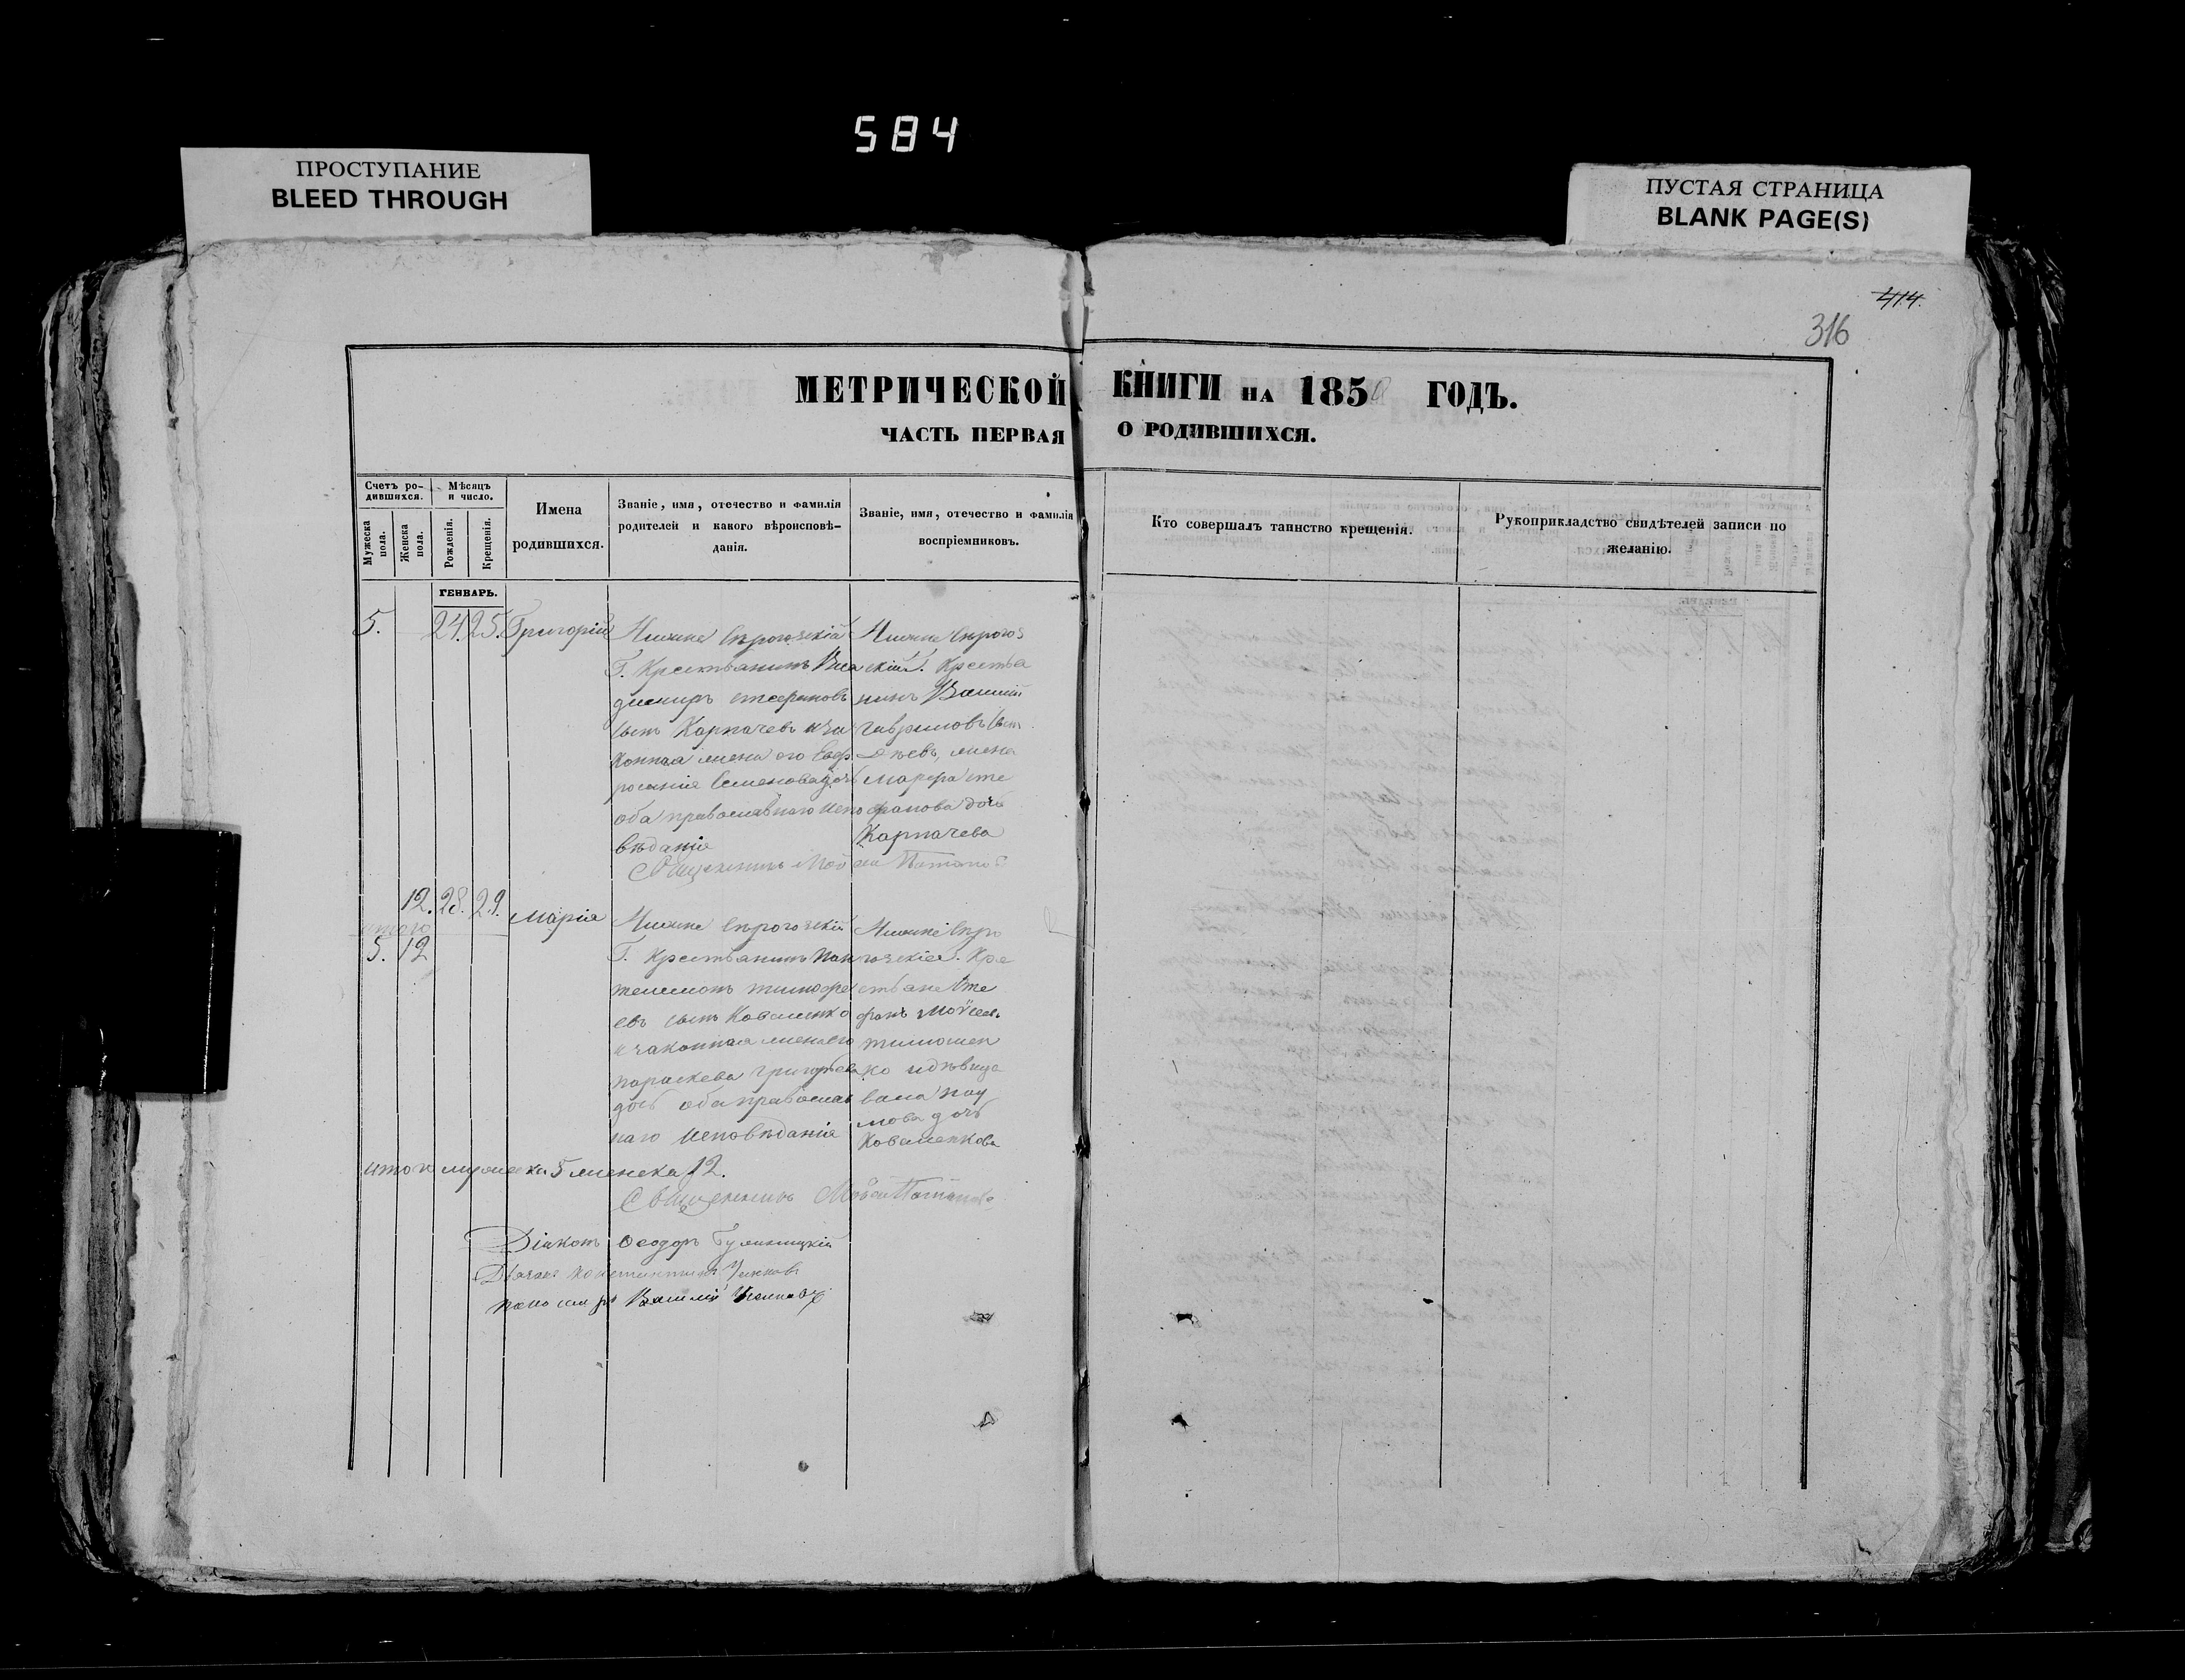 584
ПРОСТУПАНИЕ
BLEED THROUGH
ПУСТАЯ СТРАНИЦА
BLANK PAGE(S)
414.
316
МЕТРИЧЕСКОЙ КНИГИ НА 1850 ГОДЪ.
ЧАСТЬ ПЕРВАЯ О РОДИВШИХСЯ.
Счетъ ро-
дившихся.
Мужеска пола.
Женска пола.
Мѣсяцъ
и число.
Рожденія.
Крещенія.
Имена
родившихся.
Званіе, имя, отечество и фамилія
родителей и какого вѣроисповѣ-
данія.
Званіе, имя, отечество и фамилія
воспріемниковъ.
Кто совершалъ таинство крещенія.
Рукоприкладство свидѣтелей записи по
желанію.
ГЕНВАРЬ.
5. 24. 25. Григорій
Нижне Сѣрогозскій
Г. Крестьянинъ Вла
димиръ стефановъ
сынъ Карпачевъ и за
конная жена его Евф
росинія Семенова дочь
оба православнаго испо
вѣданія
Нижне Сѣрогоз
скій Г. Крестья
нинъ Василій
гавриловъ сын
жена
марфа сте
фанова дочь
Карпачева
Священникъ Мой сей
12. 28. 29. Марія
итого
5. 12
Нижне Сѣрогозскій
Г. Крестьянинъ Пан
телимонъ тимофе
евъ сынъ Коваленко
и законная жена его
параскева григорьева
дочь оба православ
наго Исповѣданія
Нижне Сѣро
гозскіе Г. Кре
стьяне Сте
фанъ Мойсеев
тимошен
ко и дѣвица
нау
мова дочь
Коваленкова
итого мужеска 5 женска 12.
Священникъ Мойсей
Діаконъ Ѳеодоръ
Дьячокъ Константинъ
пономарь Василій